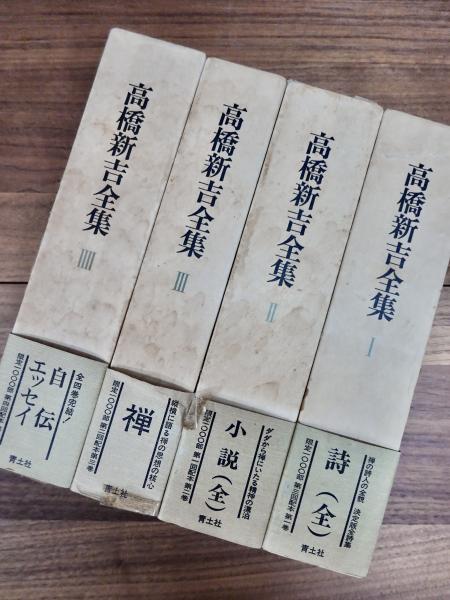 高橋新吉全集
IIII
全四巻完結!
自伝
エッセイ
限定一〇〇〇部 第四回配本
青土社
高橋新吉全集
III
縦横に語る禅の思想の核心
禅
限定一〇〇〇部 第二回配本第三巻
青土社
高橋新吉全集
II
ダダから禅にいたる精神の漂泊
小説(全)
限定一〇〇〇部 第一回配本第二巻
青土社
高橋新吉全集
I
禅の詩人の全貌 決定版全詩集
詩(全)
限定一〇〇〇部 第三回配本第一巻
青土社